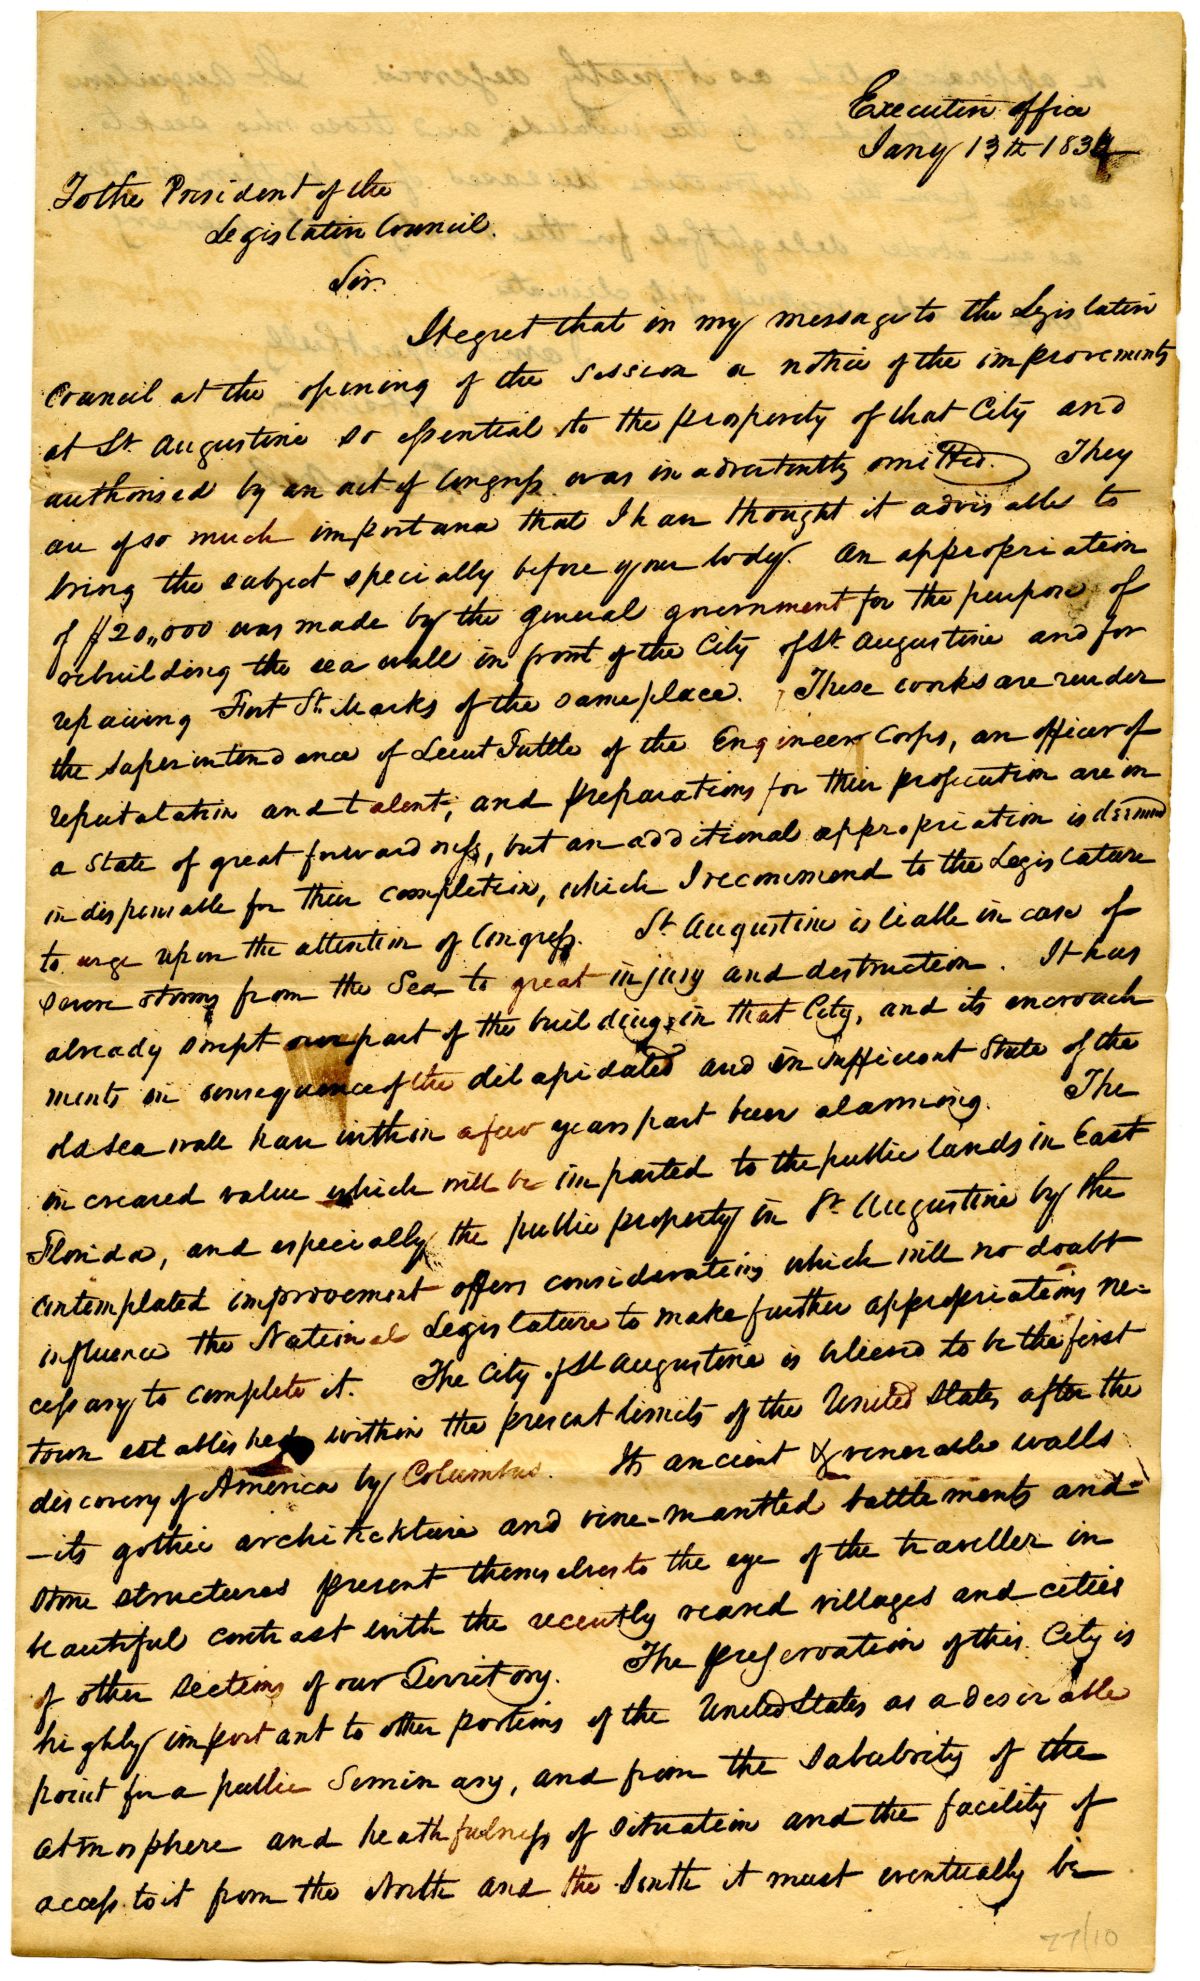 Executive Office
Jany 13th 1834
To the President of the
Legislative Council.
Sir.
I regret that in my message to the Legislative
Council at the opening of the session a notice of the improvements
at St. Augustine so essential to the prosperity of that City and
authorised by an act of Congress was inadvertently omitted. They
are of so much importance that I have thought it advisable to
bring the subject specially before your body. An appropriation
of $20,,000 was made by the general government for the purpose of
rebuilding the sea wall in front of the City of St. Augustine and for
repairing Fort St. Marks of the same place. These works are under
the superintendence of Lieut Tuttle of the Engineer Corps, an officer of
reputatation and talent; and preparations for their prosecution are in
a state of great forwardness, but an additional appropriation is deemed
indispensable for their completion, which I recommend to the Legislature
to urge upon the attention of Congress. St Augustine is liable in case of
severe storms from the Sea to great injury and destruction. It has
already swept over part of the buildings in that City, and its encroach
ments in consequence of the delapidated and insufficient State of the
old sea wall have within a few years past been alarming. The
increased value which will be imparted to the public lands in East
Florida, and especially the public property in St. Augustine by the
contemplated improvement offers considerations which will no doubt
influence the National Legislature to make further appropriations ne=
cessary to complete it. The City of St Augustine is believed to be the first
town established within the present limits of the United States after the
discovery of America by Columbus. Its ancient & venerable walls
—its gothic architeckture and vine-mantled battlements and=
stone structures present themselves to the eye of the traveller in
beautiful contrast with the recently reared villages and cities
of other sections of our Territory. The preservation of this City is
highly important to other portions of the United States as a desirable
point for a public Seminary, and from the salubrity of the
atmosphere and heathfulness of situation and the facility of
access to it from the North and the South it must eventually be
77/10